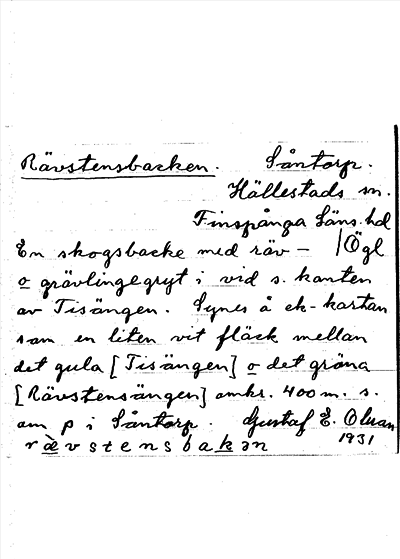 Rävstensbacken. Såntorp.
Hällestads sn.
Finspånga läns hd
En skogsbacke med räv – /Ögl
o grävlingegryt i vid s. kanten
av Tisängen. Synes å ek-kartan
som en liten vit fläck mellan
det gula [Tisängen] o det gröna
[Rävstensängen] omkr. 400 m. s.
om p i Såntorp. Gustaf E. Olsson
rævstensbakən 1931